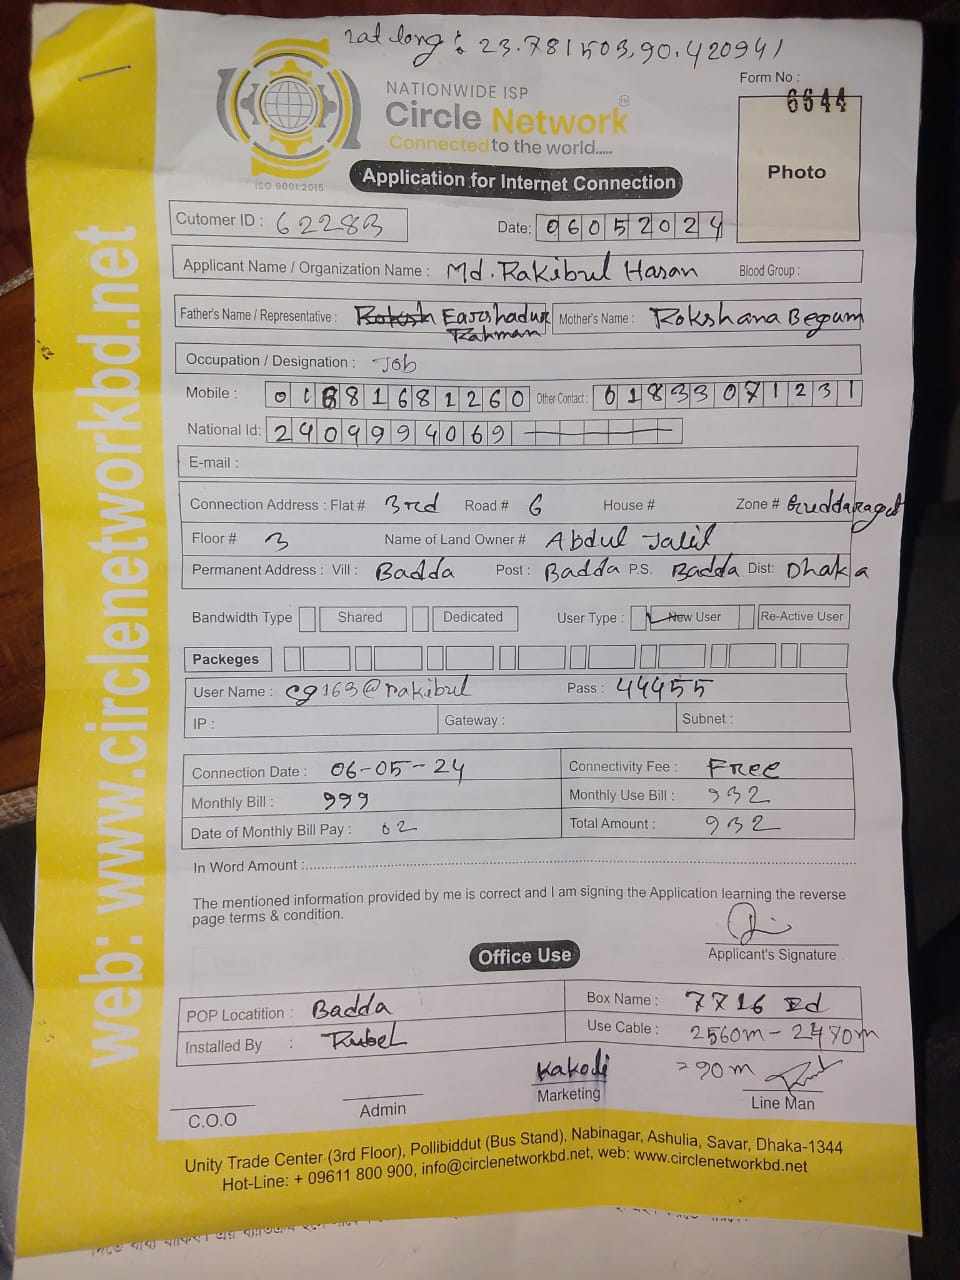 Lat long : 23.781503,90.420941
NATIONWIDE ISP
Circle Network
Connected to the world.....
ISO 9001:2015
Form No :
6644
Photo
Application for Internet Connection
Cutomer ID : 62283
Date: 06052024
Applicant Name / Organization Name : Md. Rakibul Hasan Blood Group :
Father's Name / Representative : Earshadur Rahman Mother's Name : Rokshana Begum
Occupation / Designation : Job
Mobile : 01881681260 Other Contact : 01833071231
National Id: 2409994069
E-mail :
Connection Address : Flat # 3rd Road # 6 House # Zone #
Floor # 3 Name of Land Owner # Abdul Jalil
Permanent Address : Vill : Badda Post : Badda P.S. Badda Dist: Dhaka
Bandwidth Type Shared Dedicated User Type : New User Re-Active User
Packeges
User Name : cg163@rakibul Pass : 44455
IP : Gateway : Subnet :
Connection Date : 06-05-24 Connectivity Fee : Free
Monthly Bill : 999 Monthly Use Bill : 932
Date of Monthly Bill Pay : 02 Total Amount : 932
In Word Amount :
The mentioned information provided by me is correct and I am signing the Application learning the reverse
page terms & condition.
Applicant's Signature
Office Use
POP Locatition : Badda Box Name : 7716 Ed
Installed By : Rubel Use Cable : 2560m - 2470m
= 90m
Kakoli
C.O.O Admin Marketing Line Man
Unity Trade Center (3rd Floor), Pollibiddut (Bus Stand), Nabinagar, Ashulia, Savar, Dhaka-1344
Hot-Line: + 09611 800 900, info@circlenetworkbd.net, web: www.circlenetworkbd.net
web: www.circlenetworkbd.net